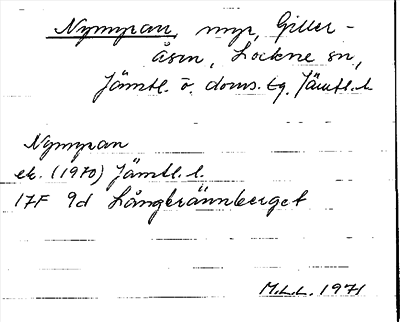 Nymyran, myr, Giller-
åsen, Lockne sn,
Jämtl. ö. doms. tg. Jämtl. l.
Nymyran
ek. (1970) Jämtl. l.
17F 9d Långbrännberget
M.L.L. 1971